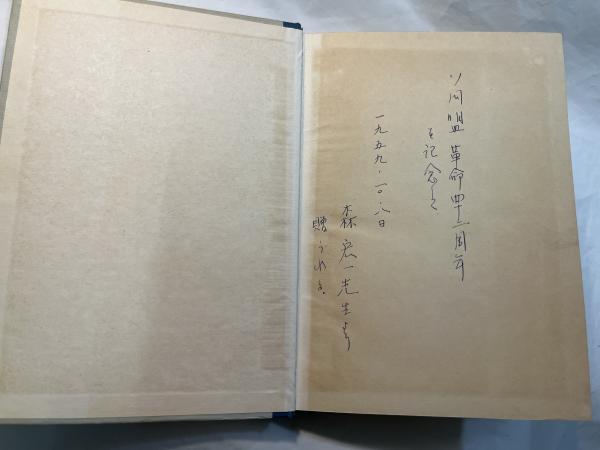 ソ同盟革命四十二周年
を記念して
一九五九・一〇・八日
森宏一先生より
贈られる。